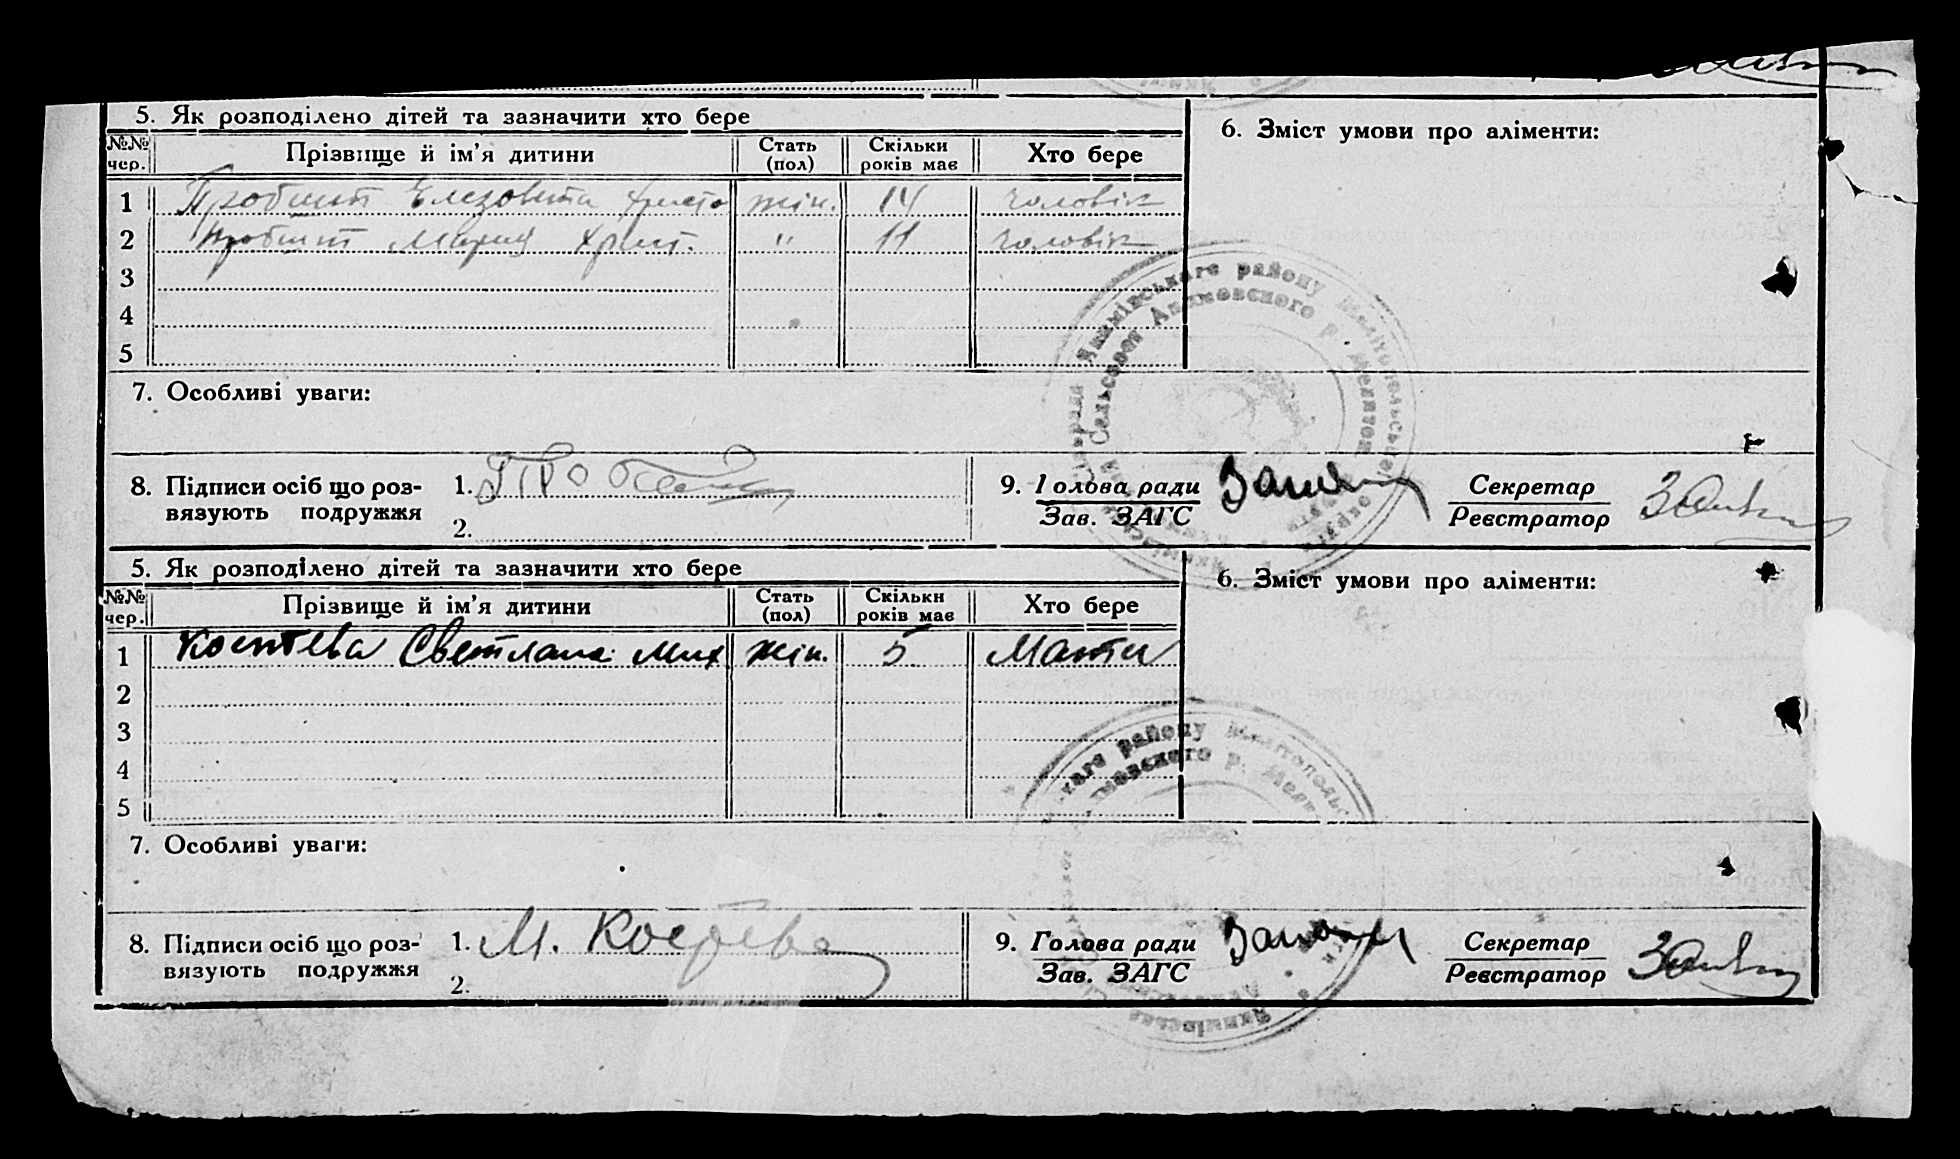 5. Як розподілено дітей та зазначити хто бере
6. Зміст умови про аліменти:
№№ чер. Прізвище й ім'я дитини Стать (пол) Скільки років має Хто бере
1 Елезовета Христо жін. 14 чоловік
2 Мария Христ. " 11 чоловік
3
4
5
7. Особливі уваги:
8. Підписи осіб що роз-
вязують подружжя
1.
2.
9. Голова ради
Зав. ЗАГС
Секретар
Реєстратор
Якимівського району Мелітопольської округи
Сельсовет Акимовского р. Мелитоп.
5. Як розподілено дітей та зазначити хто бере
6. Зміст умови про аліменти:
№№ чер. Прізвище й ім'я дитини Стать (пол) Скільки років має Хто бере
1 Коентева Светлана Мих жін. 5 Мати
2
3
4
5
7. Особливі уваги:
8. Підписи осіб що роз-
вязують подружжя
1. М.
2.
9. Голова ради
Зав. ЗАГС
Секретар
Реєстратор
району Мелітопольс